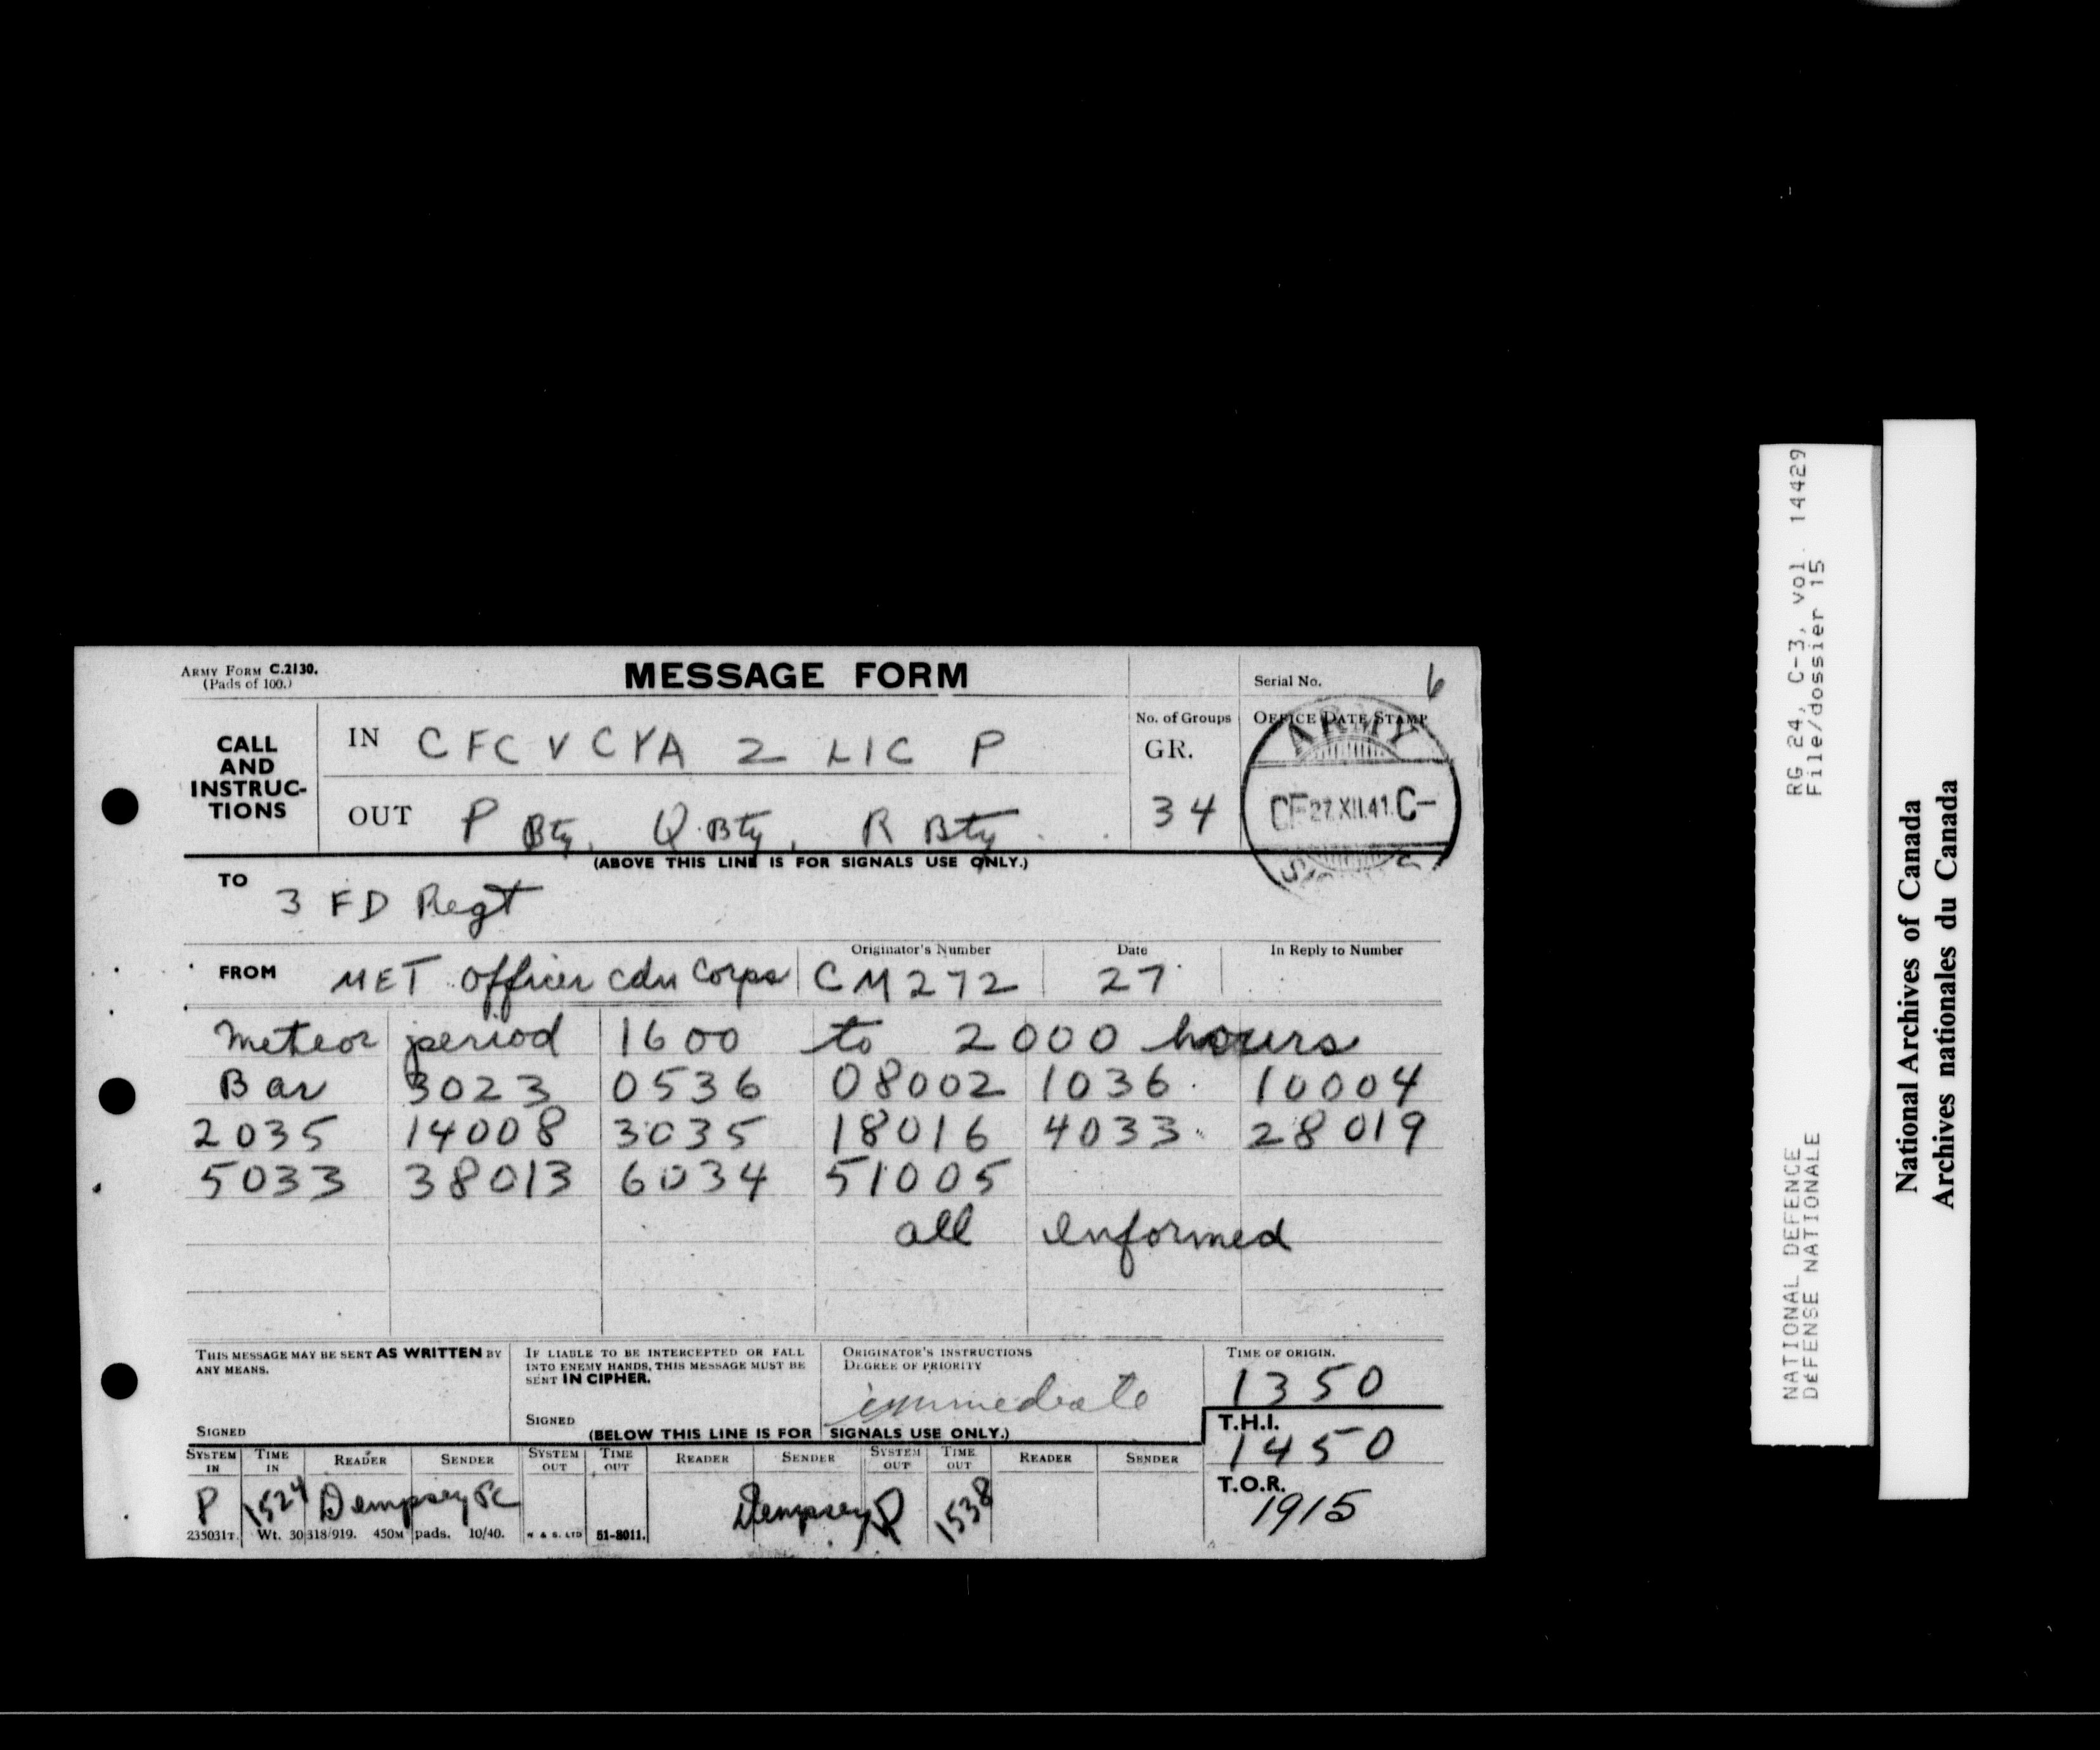 ARMY FORM C.2130.
(Pads of 100.)
MESSAGE FORM
Serial No. 6
CALL AND INSTRUC-TIONS
IN CFC V CYA 2 LIC P
No. of Groups
GR.
34
OFFICE DATE STAMP
ARMY
CF 27.XII.41 C-
OUT P Bty, Q Bty, R Bty
(ABOVE THIS LINE IS FOR SIGNALS USE ONLY.)
TO 3 FD Regt
FROM MET officer cdn Corps
Originator's Number CM272
Date 27
In Reply to Number
Meteor period 1600 to 2000 hours
Bar 3023 0536 08002 1036 10004
2035 14008 3035 18016 4033 28019
5033 38013 6034 51005
all informed
THIS MESSAGE MAY BE SENT AS WRITTEN BY ANY MEANS.
SIGNED
IF LIABLE TO BE INTERCEPTED OR FALL INTO ENEMY HANDS, THIS MESSAGE MUST BE SENT IN CIPHER.
SIGNED
ORIGINATOR'S INSTRUCTIONS
DEGREE OF PRIORITY
immediate
TIME OF ORIGIN.
1350
(BELOW THIS LINE IS FOR SIGNALS USE ONLY.)
T.H.I.
1450
T.O.R.
1915
SYSTEM IN TIME IN READER SENDER SYSTEM OUT TIME OUT READER SENDER SYSTEM OUT TIME OUT READER SENDER
P 1524 Dempsey Dempsey P 1538
235031T. Wt. 30318/919. 450M pads. 10/40. 51-8011.
RG 24, C-3, vol. 14429
File/dossier 15
NATIONAL DEFENCE
DÉFENSE NATIONALE
National Archives of Canada
Archives nationales du Canada